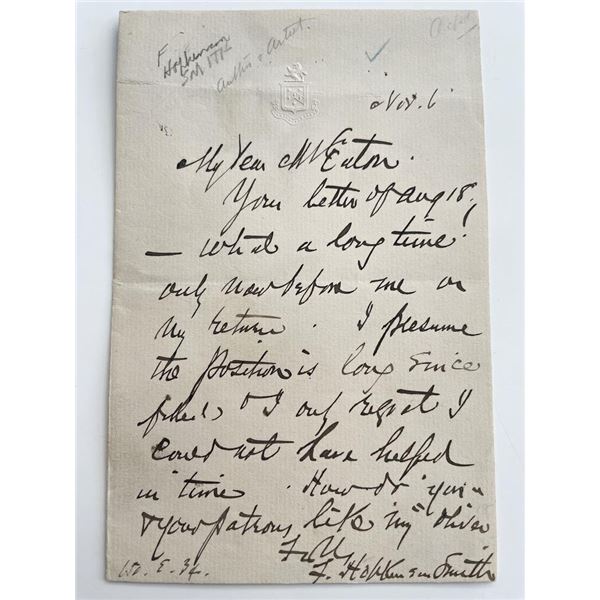 F.
Hopkinson
Smith
Author & Artist.
Nov. 6
My Dear Mr Eaton.
Your letter of Aug 18,
— What a long time!
only now before me on
my return. I presume
the position is long since
filled & I only regret I
could not have helped
in time. How do you
& your patrons like my Oliver
F. Hopkinson Smith
150. E. 34.